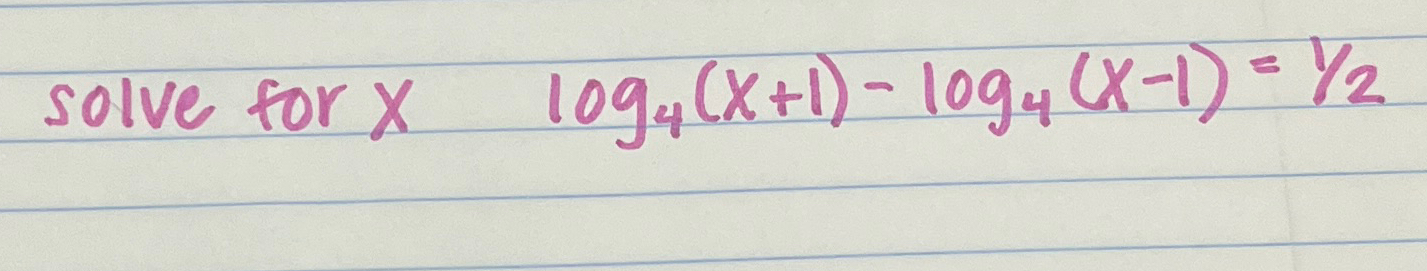 solve for x log₄(x+1) - log₄(x-1) = 1/2